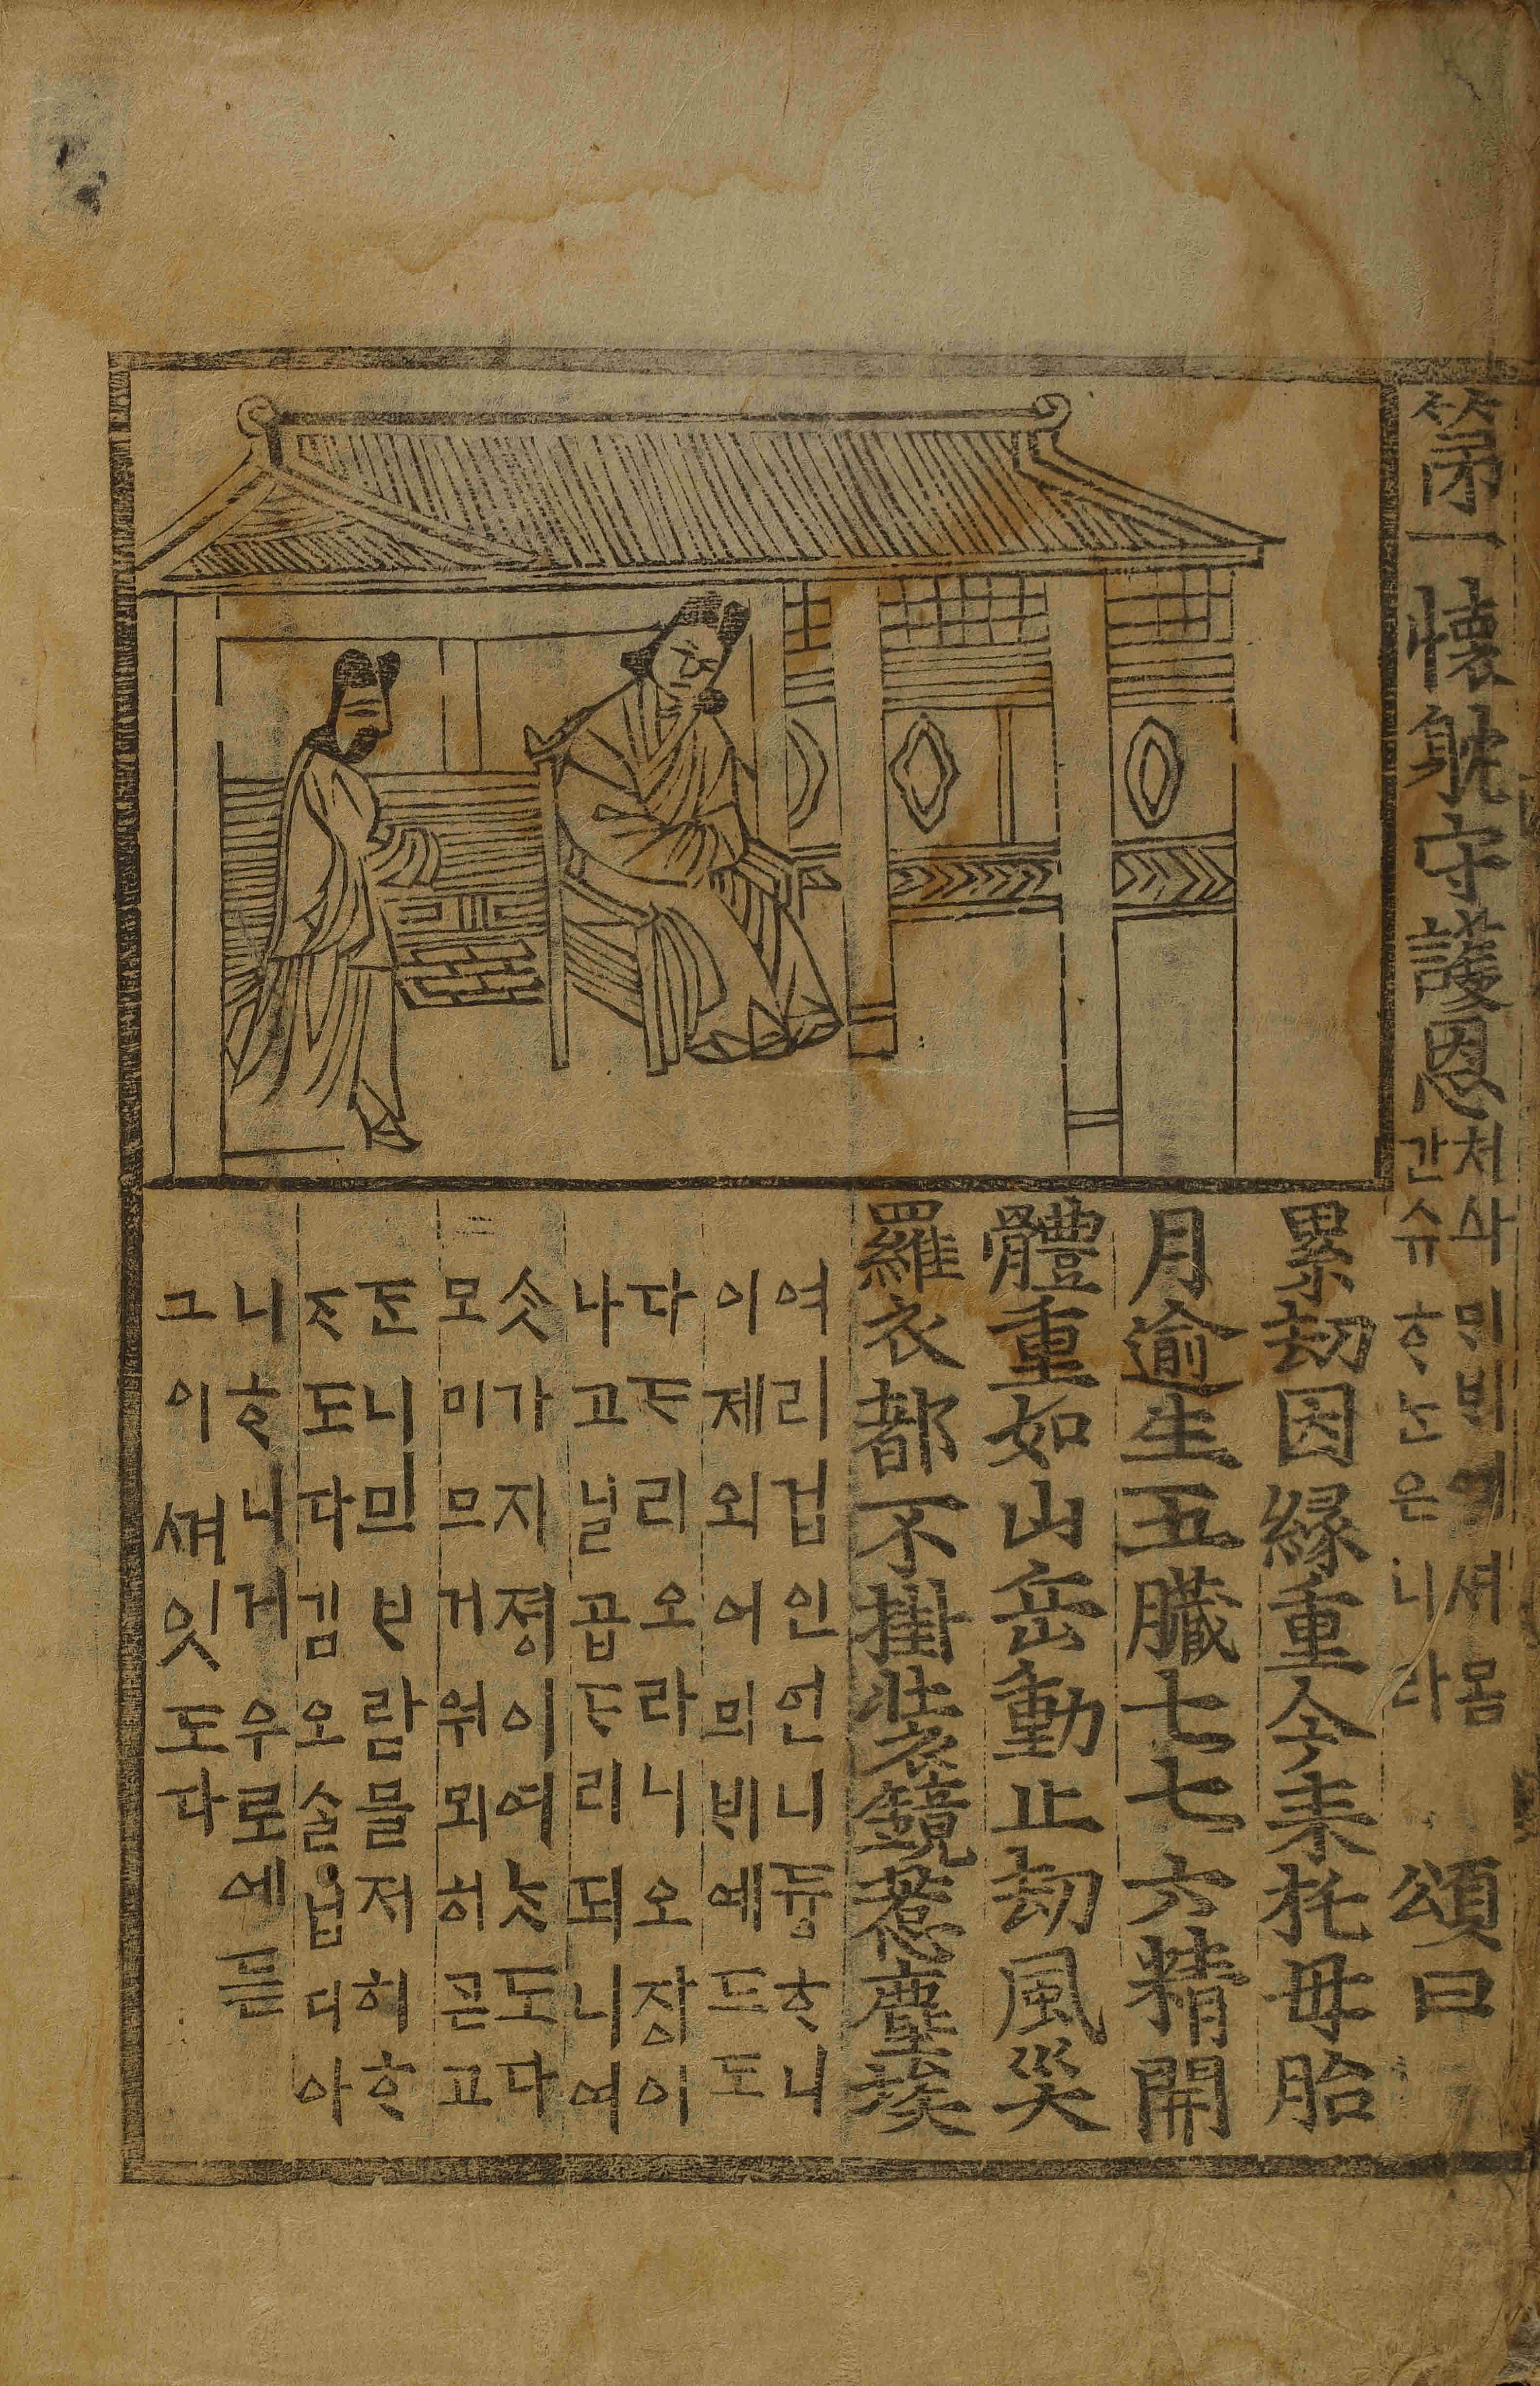 第一懷躭守護恩 처ᅀᅡ믜ᄇᆡ예셔몸
간슈ᄒᆞ논은니라 頌曰
累劫因緣重今來托母胎
月逾生五臟七七六精開
體重如山岳動止刧風災
羅衣都不掛裝鏡惹塵埃
여리겁인언니듕ᄒᆞ니
이제외어믜ᄇᆡ예드도
다ᄃᆞ리오라니오장이
나고닐곱ᄃᆞ리되니여
ᄉᆞᆺ가지졍이여ᄂᆞᆺ도다
모미므거워뫼히귿고
ᄃᆞᆫ니믜ᄇᆞ람믈저히ᄒᆞ
ᄌᆞ도다김오ᄉᆞᆯ닙디아
니ᄒᆞ니게우로에듣
그이ᄭᅧ잇도다